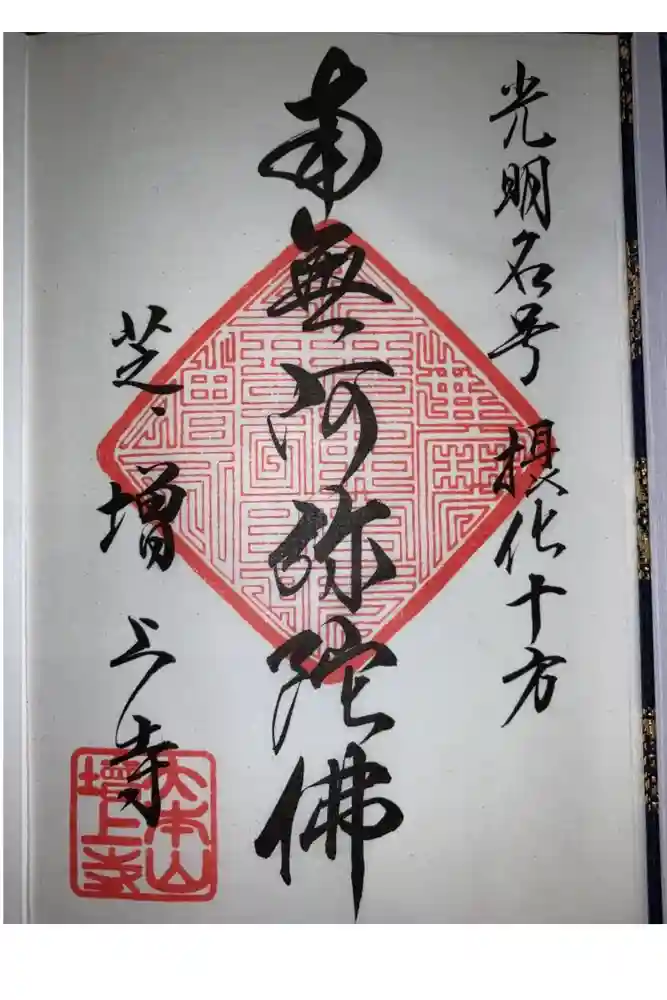 光明名号 摂化十方
南無阿弥陀佛
芝・増上寺
大本山
増上寺